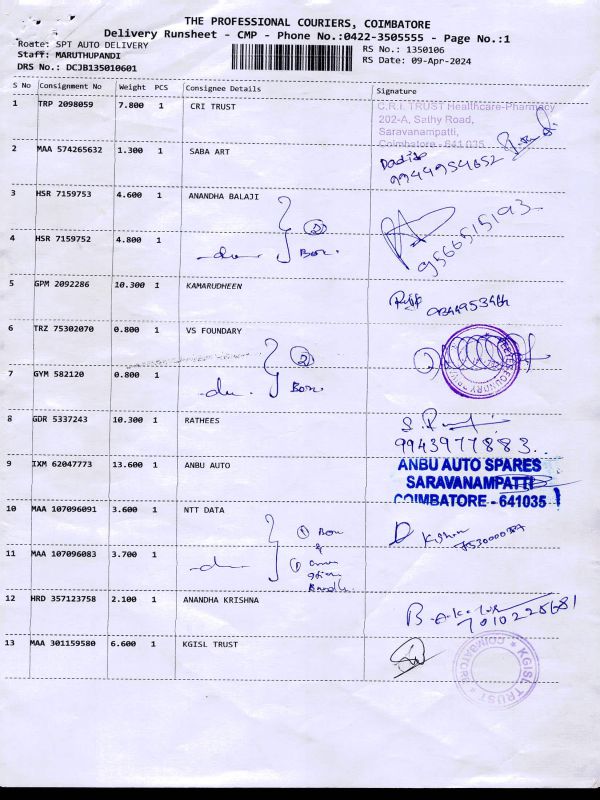 THE PROFESSIONAL COURIERS, COIMBATORE
Delivery Runsheet - CMP - Phone No.:0422-3505555 - Page No.:1
Route: SPT AUTO DELIVERY
Staff: MARUTHUPANDI
DRS No.: DCJB135010601
RS No.: 1350106
RS Date: 09-Apr-2024
S No Consignment No Weight PCS Consignee Details Signature
1 TRP 2098059 7.800 1 CRI TRUST
C.R.I. TRUST Healthcare-Pharmacy
202-A, Sathy Road,
Saravanampatti,
Coimbatore - 641 035
2 MAA 574265632 1.300 1 SABA ART
9944954652
3 HSR 7159753 4.600 1 ANANDHA BALAJI
② Box.
9566515193
4 HSR 7159752 4.800 1 -du-
5 GPM 2092286 10.300 1 KAMARUDHEEN
6 TRZ 75302070 0.800 1 VS FOUNDARY
② Box.
7 GYM 582120 0.800 1 -du-
8 GDR 5337243 10.300 1 RATHEES
9943977883
9 IXM 62047773 13.600 1 ANBU AUTO
ANBU AUTO SPARES
SARAVANAMPATTI
COIMBATORE - 641035
10 MAA 107096091 3.600 1 NTT DATA
① Box
&
Kishor
11 MAA 107096083 3.700 1 -du-
12 HRD 357123758 2.100 1 ANANDHA KRISHNA
7010228681
13 MAA 301159580 6.600 1 KGISL TRUST
KGISL TRUST
COIMBATORE